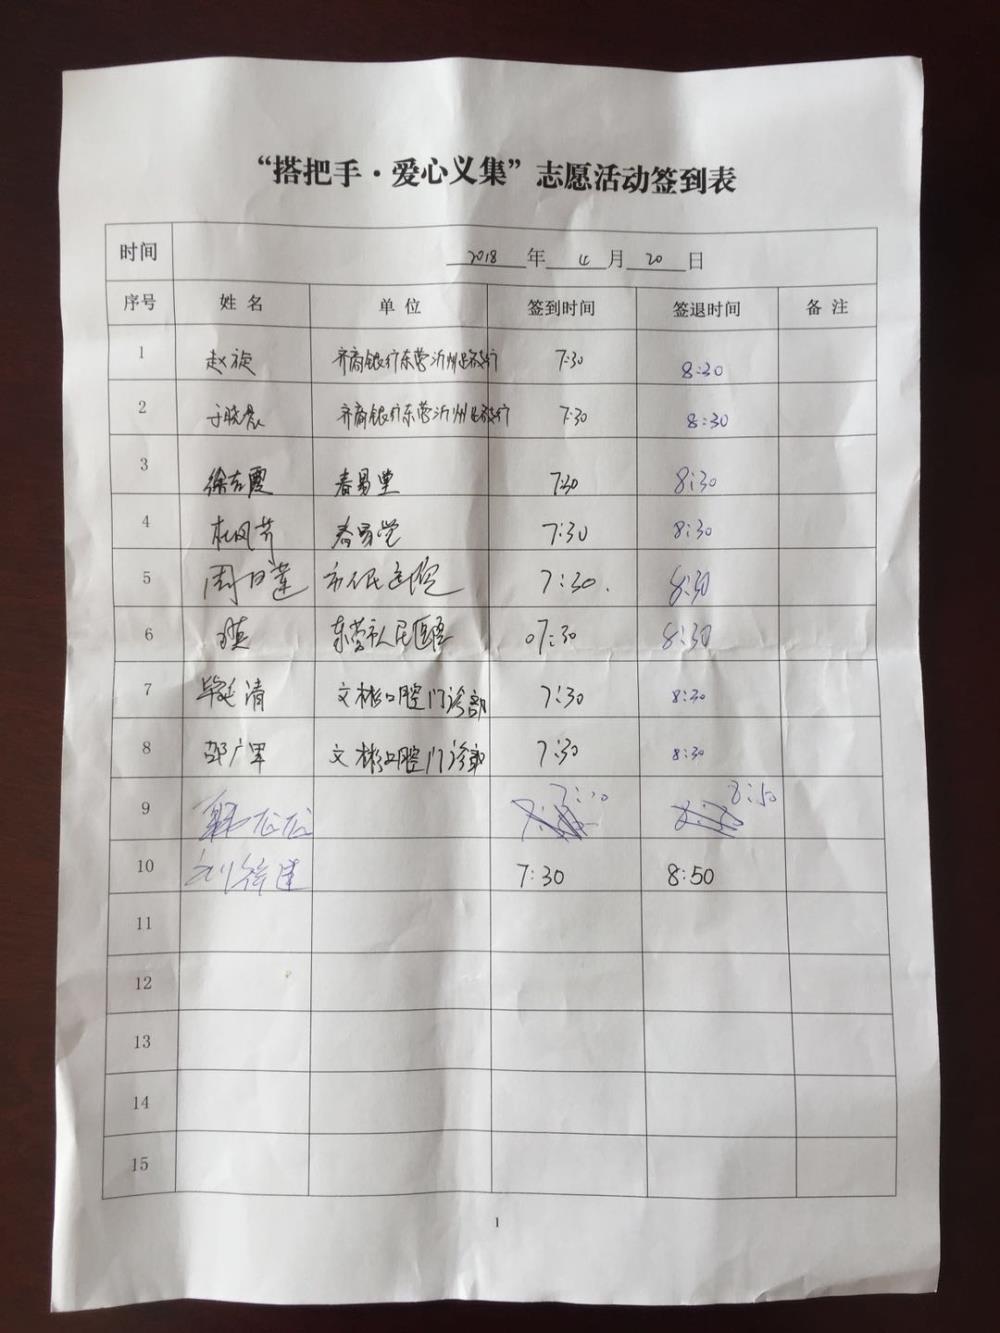 “搭把手·爱心义集”志愿活动签到表
时间 2018 年 4 月 20 日
序号 姓名 单位 签到时间 签退时间 备注
1 赵旋 齐商银行东营沂州路支行 7:30 8:30
2 于晓晨 齐商银行东营沂州路支行 7:30 8:30
3 徐冬霞 春易堂 7:30 8:30
4 杜凤芹 春易堂 7:30 8:30
5 周日莲 市人民医院 7:30. 8:30
6 东营市人民医院 07:30 8:30
7 毕延清 文彬口腔门诊部 7:30 8:30
8 邵广军 文彬口腔门诊部 7:30 8:30
9 8:50
10 7:30 8:50
11
12
13
14
15
1